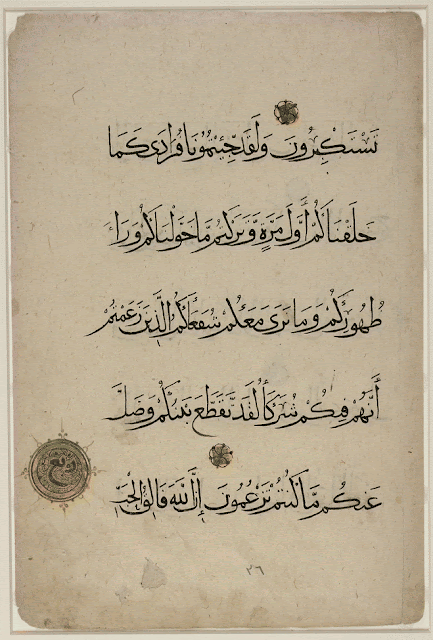 تَسْتَكْبِرُونَ وَلَقَدْ جِئْتُمُونَا فُرَادَى كَمَا
خَلَقْنَاكُمْ أَوَّلَ مَرَّةٍ وَتَرَكْتُمْ مَا خَوَّلْنَاكُمْ وَرَاءَ
ظُهُورِكُمْ وَمَا نَرَى مَعَكُمْ شُفَعَاءَكُمُ الَّذِينَ زَعَمْتُمْ
أَنَّهُمْ فِيكُمْ شُرَكَاءُ لَقَدْ تَقَطَّعَ بَيْنَكُمْ وَضَلَّ
عَنْكُمْ مَا كُنْتُمْ تَزْعُمُونَ إِنَّ اللَّهَ فَالِقُ الْحَبِّ
٣٦